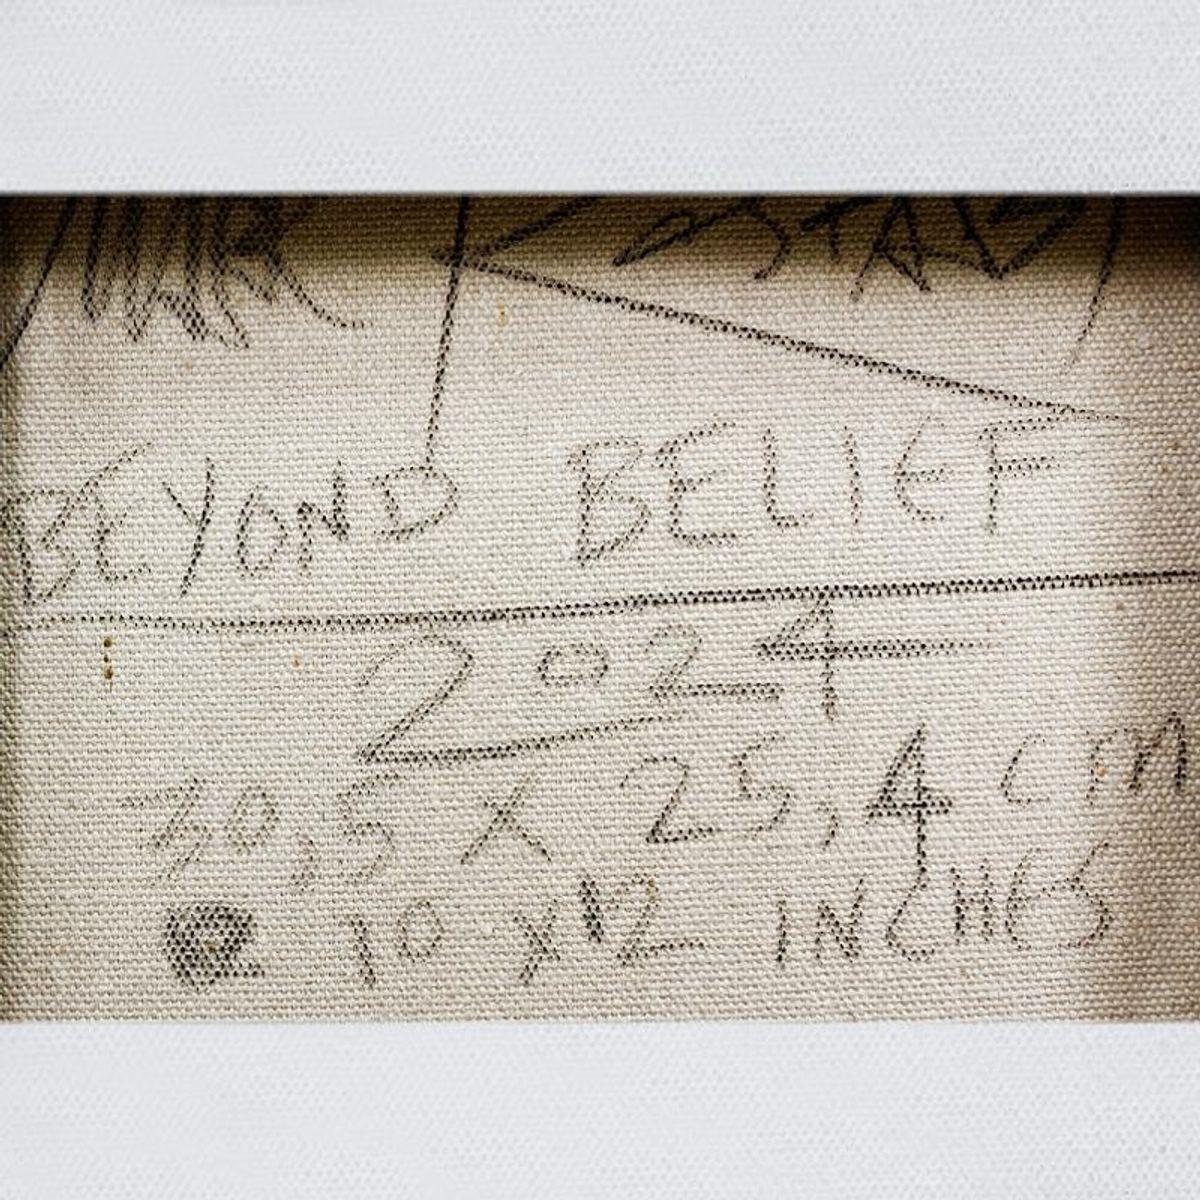 BEYOND BELIEF
2024
30,5 X 25,4 CM
10 X 12 INCHES